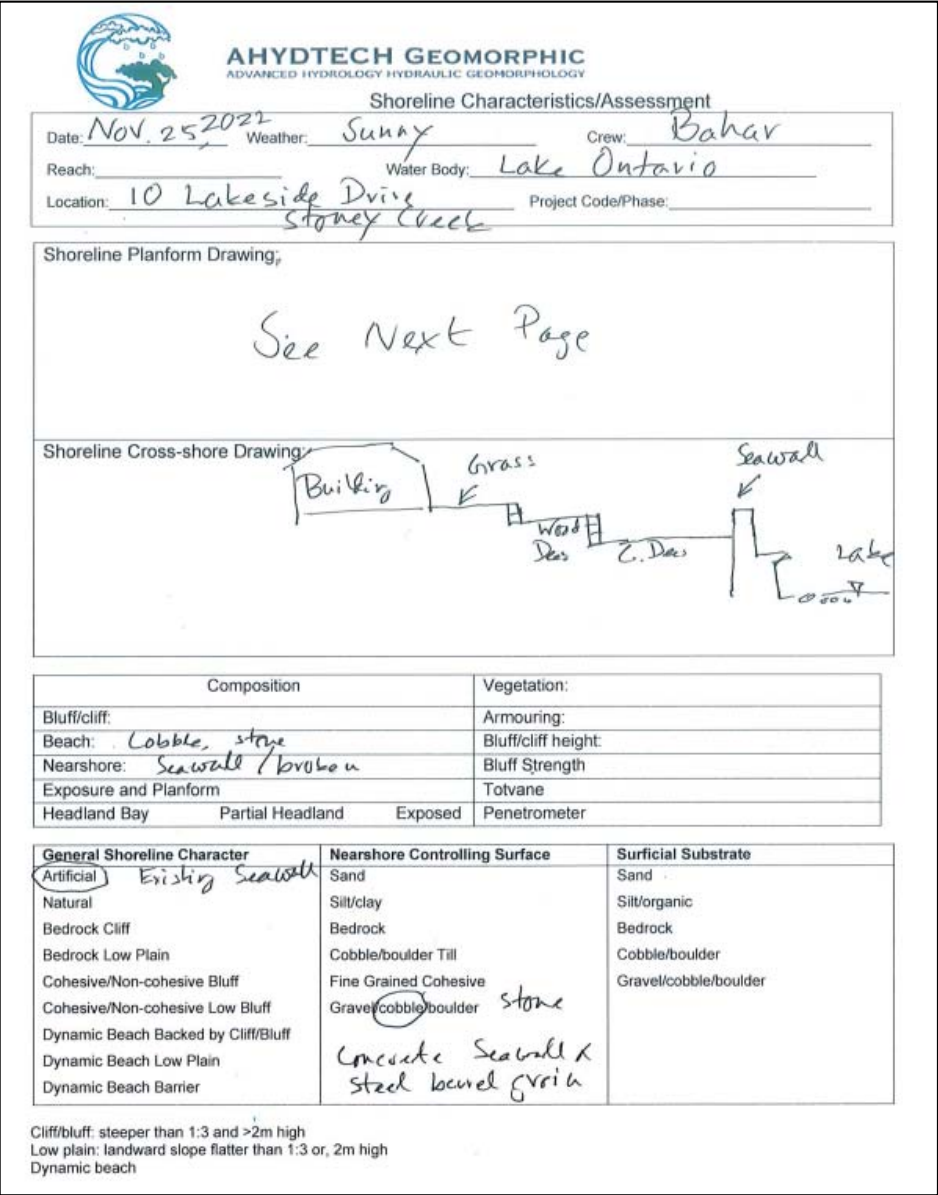 AHYDTECH GEOMORPHIC
ADVANCED HYDROLOGY HYDRAULIC GEOMORPHOLOGY
Shoreline Characteristics/Assessment
Date: Nov. 25, 2022 Weather: Sunny Crew: Bahar
Reach: Water Body: Lake Ontario
Location: 10 Lakeside Drive Project Code/Phase:
Stoney Creek
Shoreline Planform Drawing;
See Next Page
Shoreline Cross-shore Drawing:
Building
Grass
Wood
C.
Seawall
Lake
Composition Vegetation:
Bluff/cliff: Armouring:
Beach: Cobble, stone Bluff/cliff height:
Nearshore: Seawall / broken Bluff Strength
Exposure and Planform Totvane
Headland Bay Partial Headland Exposed Penetrometer
General Shoreline Character Nearshore Controlling Surface Surficial Substrate
Artificial Existing Seawall Sand Sand
Natural Silt/clay Silt/organic
Bedrock Cliff Bedrock Bedrock
Bedrock Low Plain Cobble/boulder Till Cobble/boulder
Cohesive/Non-cohesive Bluff Fine Grained Cohesive Gravel/cobble/boulder
Cohesive/Non-cohesive Low Bluff Gravel/cobble/boulder stone
Dynamic Beach Backed by Cliff/Bluff
Dynamic Beach Low Plain Concrete Seawall &
Dynamic Beach Barrier steel
Cliff/bluff: steeper than 1:3 and >2m high
Low plain: landward slope flatter than 1:3 or, 2m high
Dynamic beach